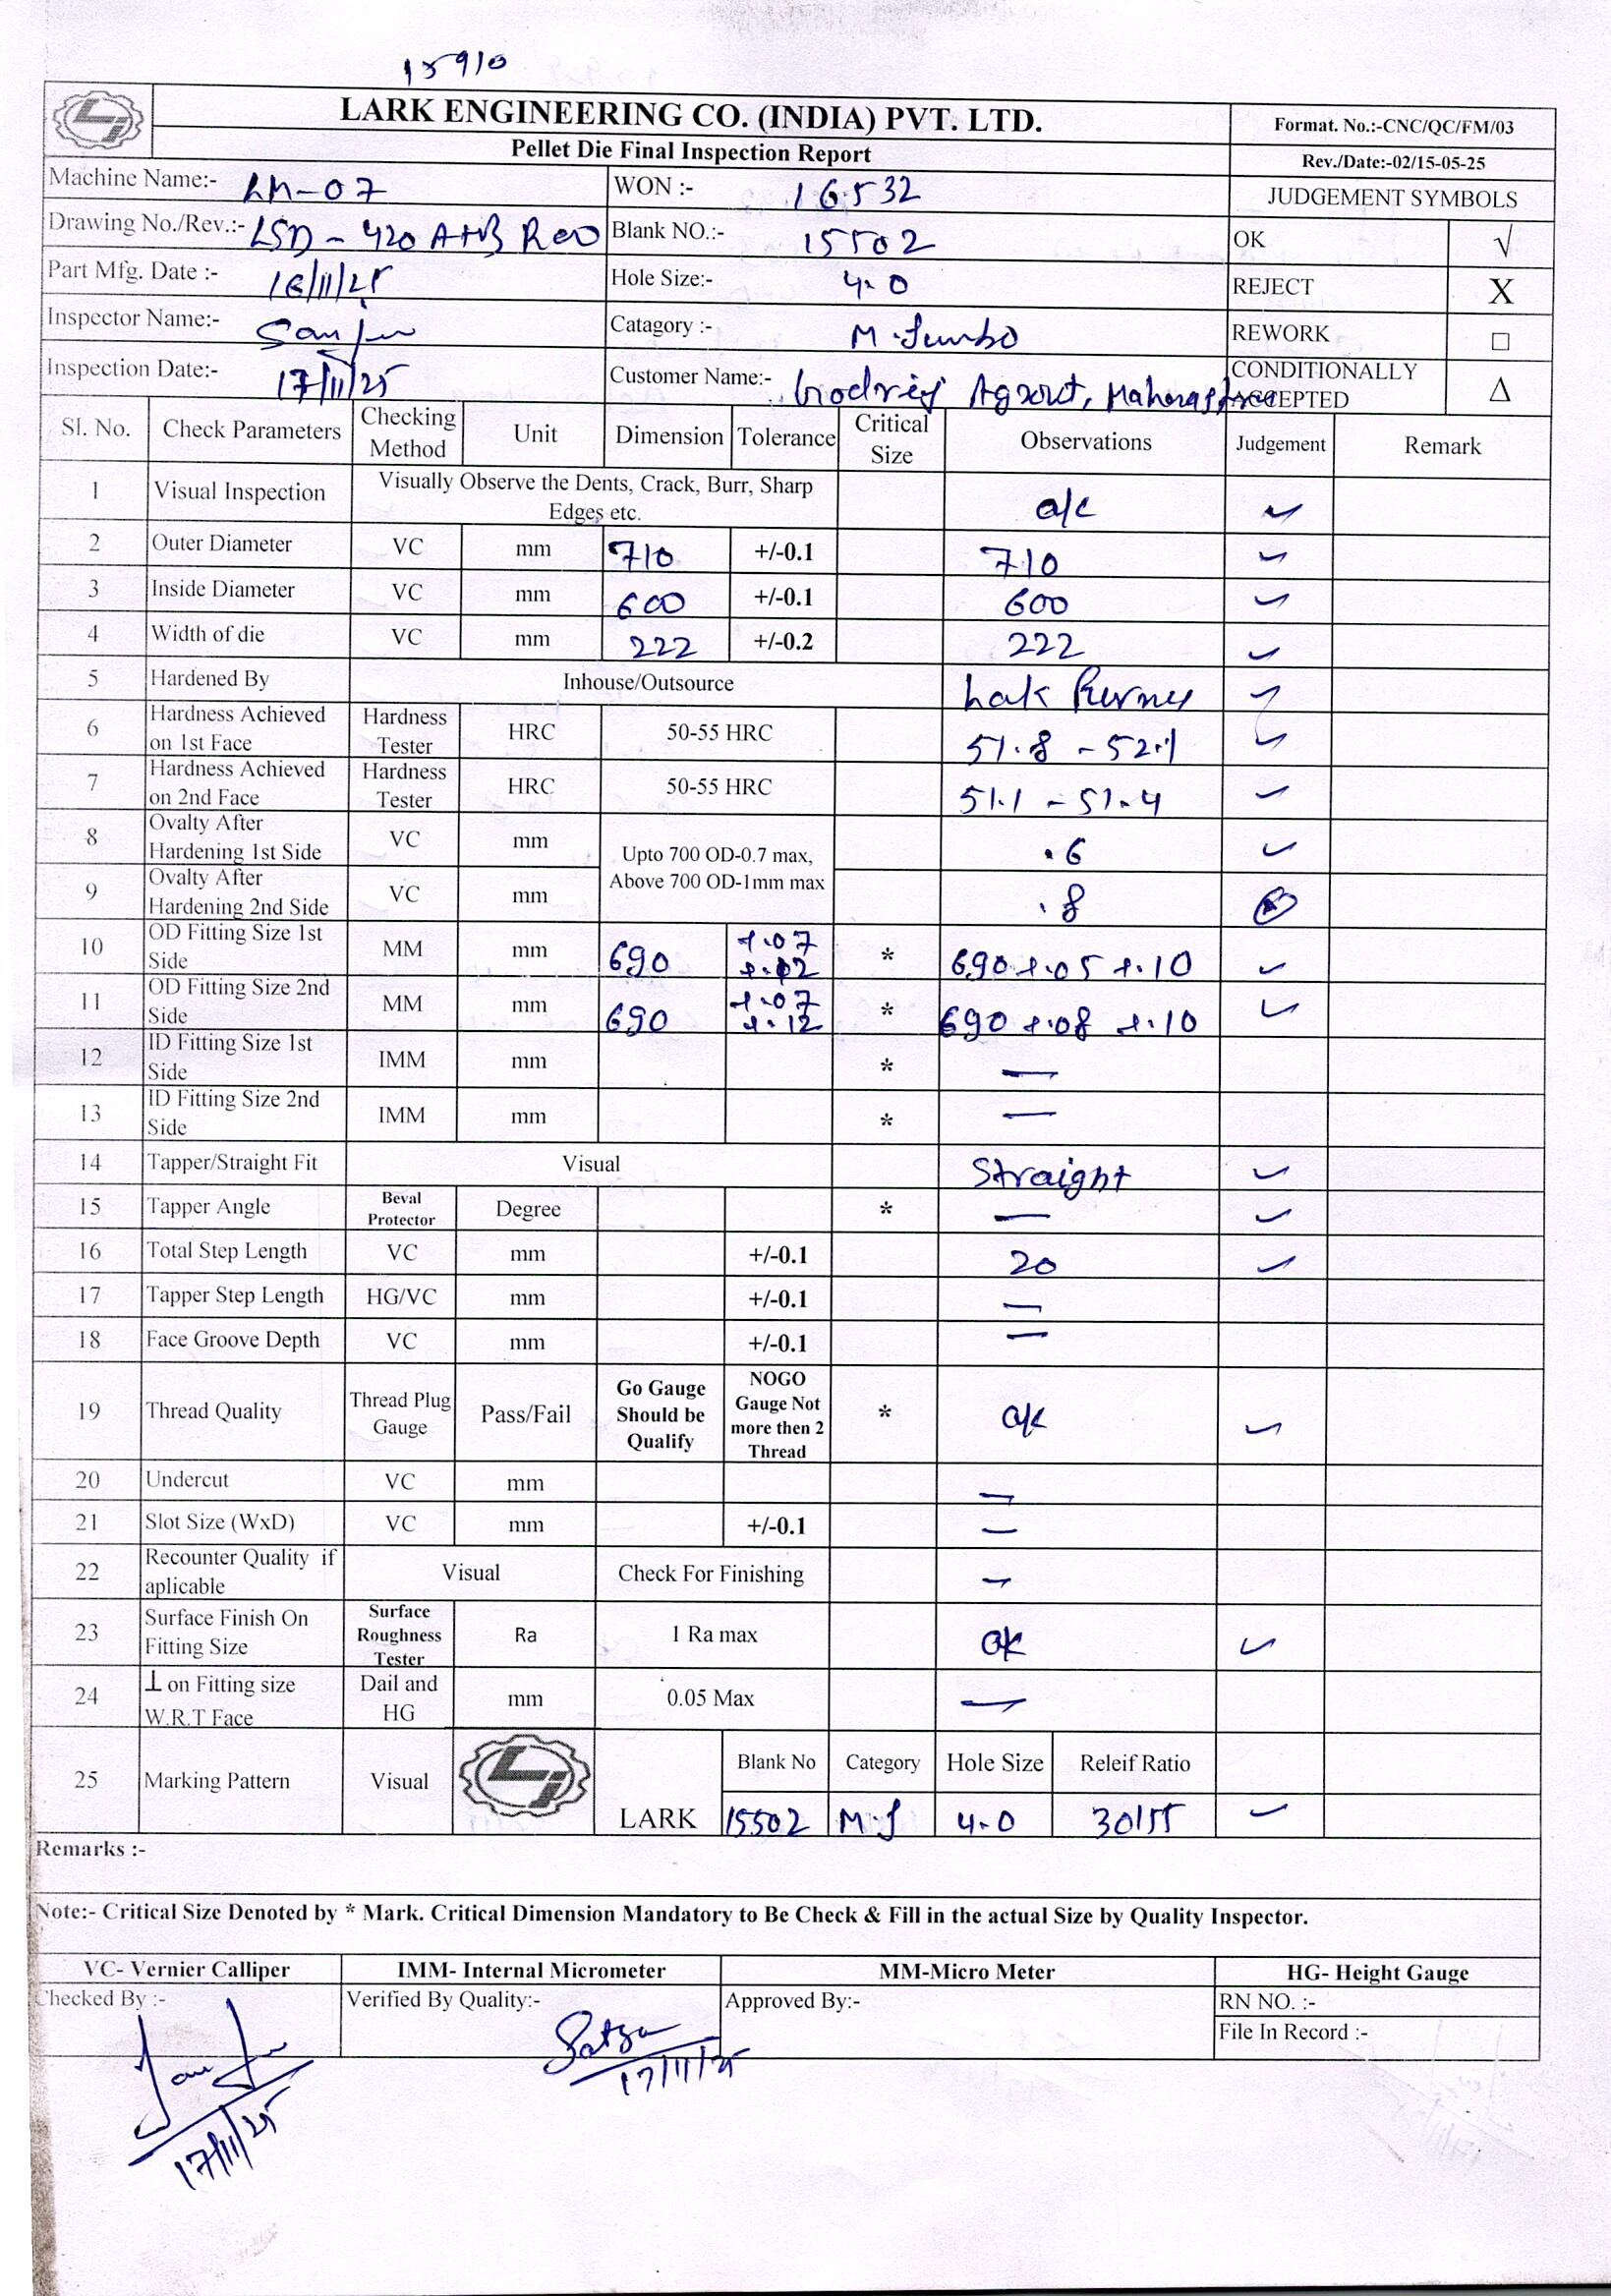 15910
LARK ENGINEERING CO. (INDIA) PVT. LTD.
Format. No.:-CNC/QC/FM/03
Pellet Die Final Inspection Report
Rev./Date:-02/15-05-25
Machine Name:- LM-07 WON :- 16532 JUDGEMENT SYMBOLS
Drawing No./Rev.:- LSD-420 A+B R00 Blank NO.:- 15502 OK √
Part Mfg. Date :- 16/11/25 Hole Size:- 4.0 REJECT X
Inspector Name:- Catagory :- M.Jumbo REWORK □
Inspection Date:- 17/11/25 Customer Name:- Godrej Agrovet, CONDITIONALLY ACCEPTED Δ
Sl. No. Check Parameters Checking Method Unit Dimension Tolerance Critical Size Observations Judgement Remark
1 Visual Inspection Visually Observe the Dents, Crack, Burr, Sharp Edges etc. o/k ✓
2 Outer Diameter VC mm 710 +/-0.1 710 ✓
3 Inside Diameter VC mm 600 +/-0.1 600 ✓
4 Width of die VC mm 222 +/-0.2 222 ✓
5 Hardened By Inhouse/Outsource ✓
6 Hardness Achieved on 1st Face Hardness Tester HRC 50-55 HRC 51.8 - 52.1 ✓
7 Hardness Achieved on 2nd Face Hardness Tester HRC 50-55 HRC 51.1 - 51.4 ✓
8 Ovalty After Hardening 1st Side VC mm Upto 700 OD-0.7 max, Above 700 OD-1mm max .6 ✓
9 Ovalty After Hardening 2nd Side VC mm .8
10 OD Fitting Size 1st Side MM mm 690 +.07 * 690 +.05 +.10 ✓
11 OD Fitting Size 2nd Side MM mm 690 +.07 +.12 * 690 +.08 +.10 ✓
12 ID Fitting Size 1st Side IMM mm * —
13 ID Fitting Size 2nd Side IMM mm * —
14 Tapper/Straight Fit Visual Straight ✓
15 Tapper Angle Beval Protector Degree * — ✓
16 Total Step Length VC mm +/-0.1 20 ✓
17 Tapper Step Length HG/VC mm +/-0.1 —
18 Face Groove Depth VC mm +/-0.1 —
19 Thread Quality Thread Plug Gauge Pass/Fail Go Gauge Should be Qualify NOGO Gauge Not more then 2 Thread * o/k ✓
20 Undercut VC mm —
21 Slot Size (WxD) VC mm +/-0.1 —
22 Recounter Quality if aplicable Visual Check For Finishing —
23 Surface Finish On Fitting Size Surface Roughness Tester Ra 1 Ra max ok ✓
24 ⊥ on Fitting size W.R.T Face Dail and HG mm 0.05 Max —
25 Marking Pattern Visual LARK Blank No Category Hole Size Releif Ratio
15502 M.J 4.0 30/55 ✓
Remarks :-
Note:- Critical Size Denoted by * Mark. Critical Dimension Mandatory to Be Check & Fill in the actual Size by Quality Inspector.
VC- Vernier Calliper IMM- Internal Micrometer MM-Micro Meter HG- Height Gauge
Checked By :- Verified By Quality:- Approved By:- RN NO. :-
File In Record :-
17/11/25
17/11/25